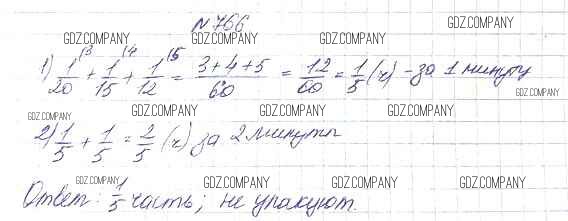 №766
GDZ.COMPANY GDZ.COMPANY GDZ.COMPANY
1) 1/20 \3 + 1/15 \4 + 1/12 \5 = 3+4+5/60 = 12/60 = 1/5 (ч) - за 1 минуту
GDZ.COMPANY
GDZ.COMPANY GDZ.COMPANY GDZ.COMPANY
2) 1/5 + 1/5 = 2/5 (ч) за 2 минуты
GDZ.COMPANY GDZ.COMPANY GDZ.COMPANY
GDZ.COMPANY GDZ.COMPANY GDZ.COMPANY
Ответ: 1/5 часть; не упакуют.